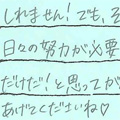 しれません！でも、そ
日々の努力が必要
だけだ！と思ってが
あげてくださいね♡